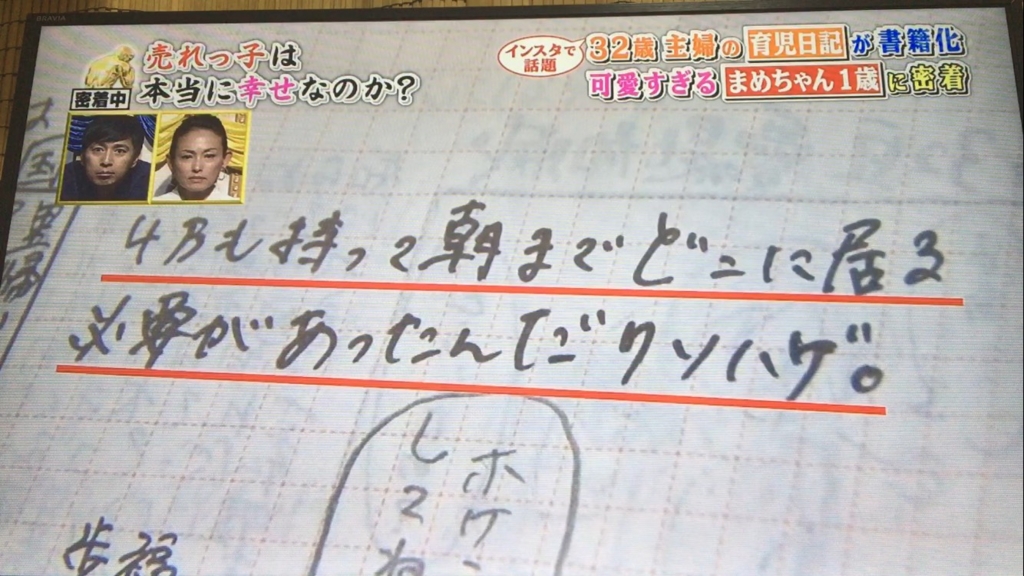 BRAVIA
売れっ子は
本当に幸せなのか?
密着中
インスタで
話題
32歳 主婦の 育児日記 が 書籍化
可愛すぎる まめちゃん1歳 に密着
4万も持って朝までどこに居る
必要があったんだクソハゲ。
ホケ
して